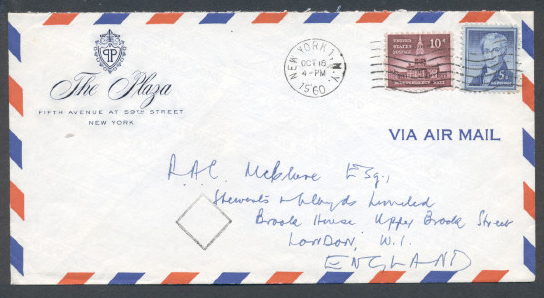 The Plaza
FIFTH AVENUE AT 59TH STREET
NEW YORK
NEW YORK 1, N.Y.
OCT 16
4-PM
1960
UNITED STATES POSTAGE
10¢
INDEPENDENCE HALL
5¢
VIA AIR MAIL
R.A.C. McClure Esq.,
Stewarts & Lloyds Limited
Brook House Upper Brook Street
London, W.1.
ENGLAND